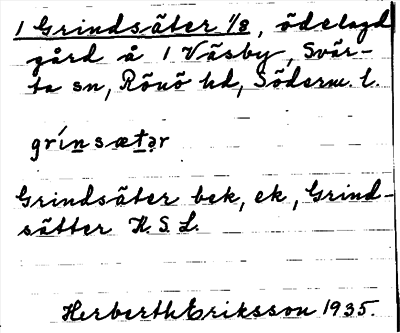 1 Grindsäter 1/8, ödelagd
gård å 1 Väsby, Svär-
ta sn, Rönö hd, Söderm. l.
grínsætər
Grindsäter bek, ek, Grind-
sätter H. S. L.
Herberth Eriksson 1935.